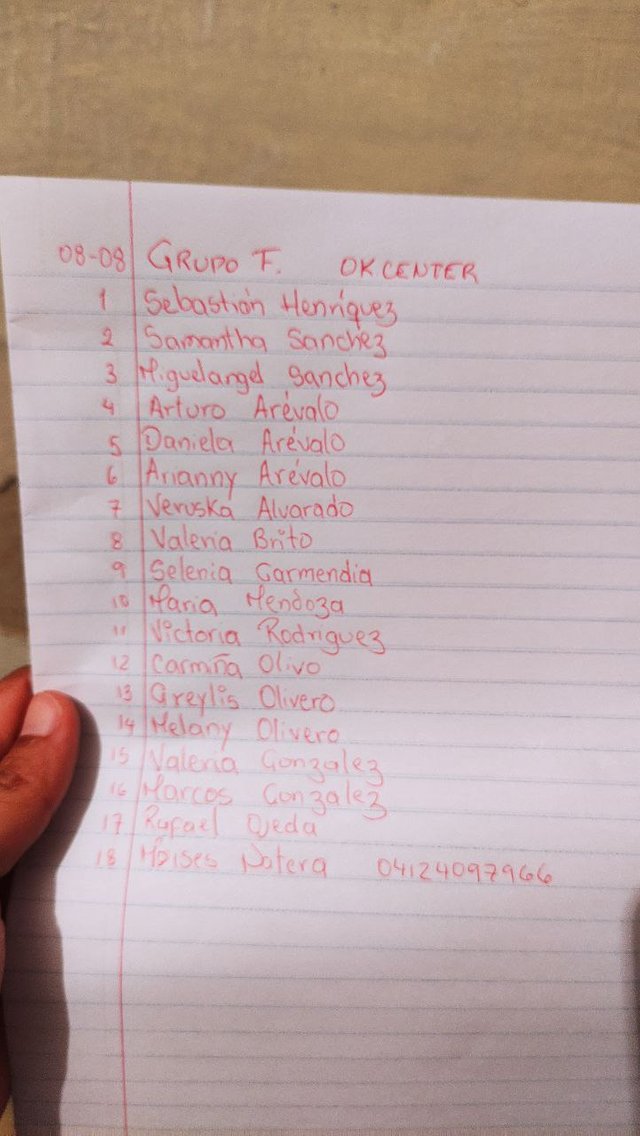 08-08 GRUPO F. OK CENTER
1 Sebastián Henríquez
2 Samantha Sanchez
3 Miguelangel Sanchez
4 Arturo Arévalo
5 Daniela Arévalo
6 Arianny Arévalo
7 Veruska Alvarado
8 Valeria Brito
9 Selenia Garmendia
10 Maria Mendoza
11 Victoria Rodriguez
12 Carmiña Olivo
13 Greylis Olivero
14 Melany Olivero
15 Valeria Gonzalez
16 Marcos Gonzalez
17 Rafael Ojeda
18 Moises Natera 04124097966